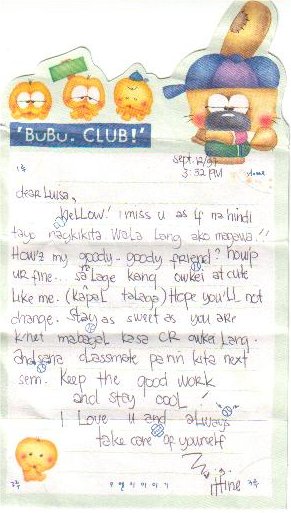 'BUBU. CLUB!'
sept. 12/97
3:32 PM
dear Luisa,
Hellow! I miss u as if na hindi
tayo nagkikita wala lang ako magawa!!
How's my goody-goody friend? howp
ur fine... sa lage kang owkei at cute
like me. (kapal talaga) Hope you'll not
change. Stay as sweet as you are
k'het mabagal kasa CR owkei lang.
andsana classmate parin kita next
sem. Keep the good work
and stay cool!
I Love u and always
take care of yourself
우 엔 이 이 야 기